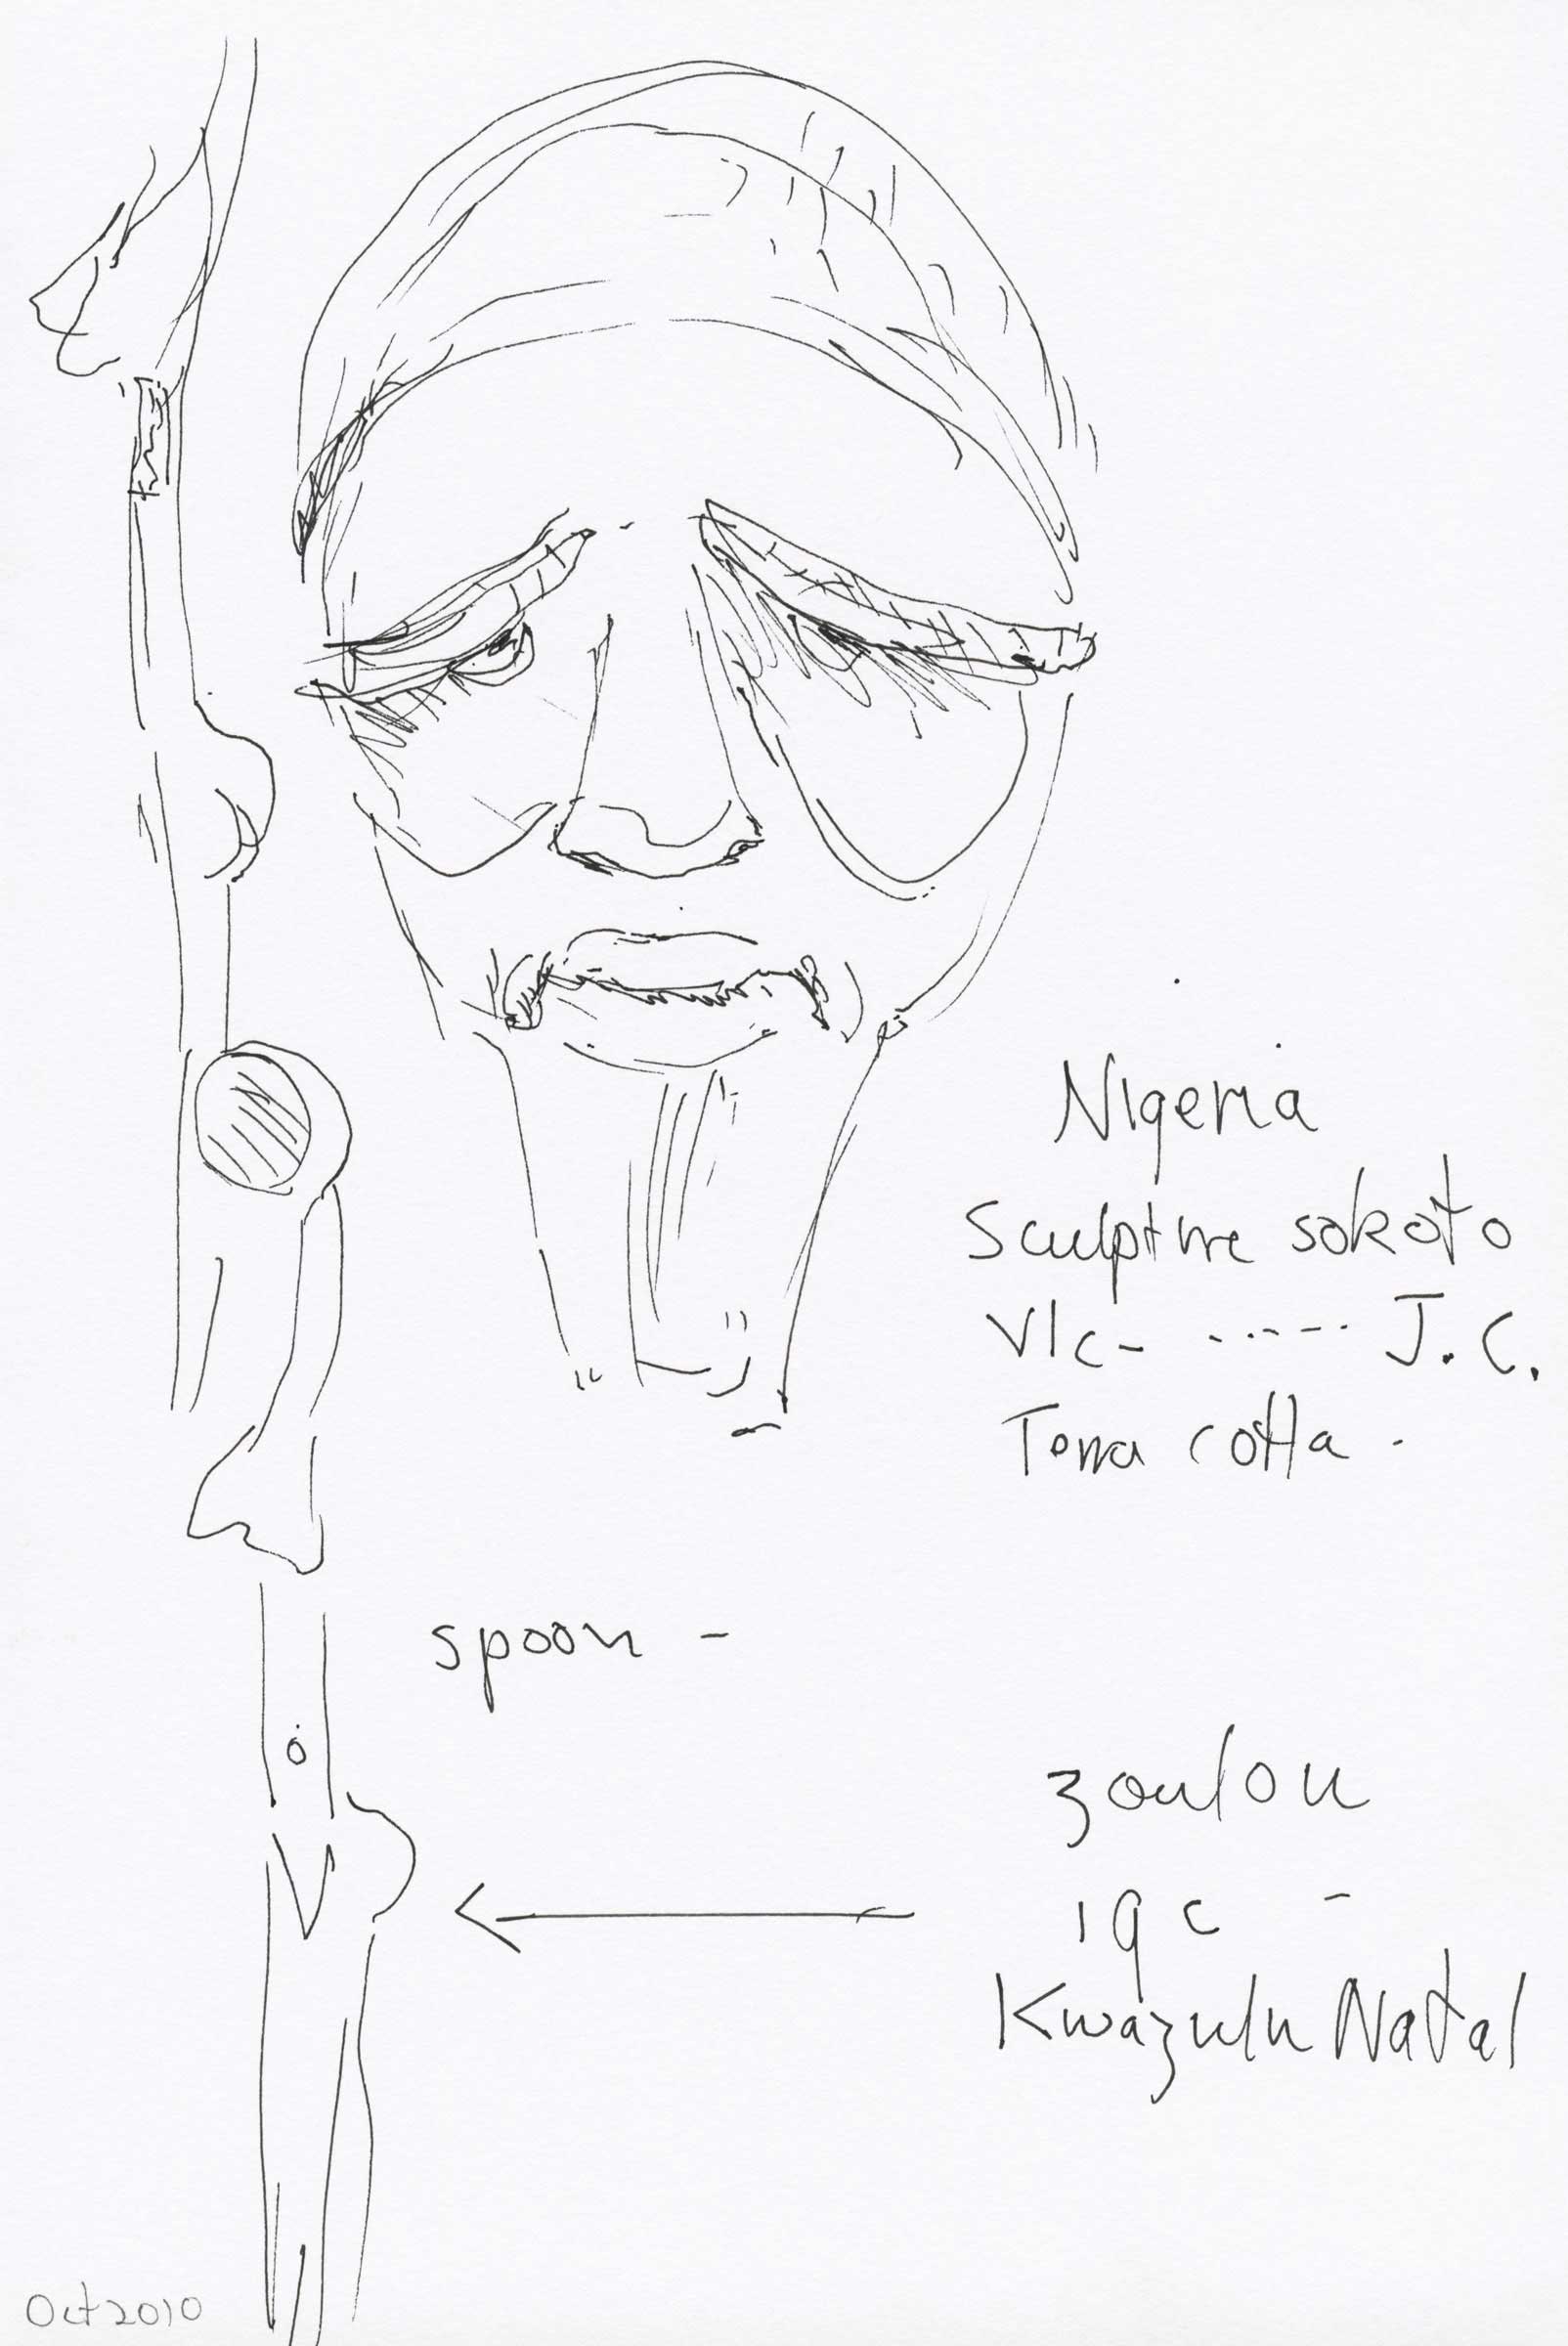 Nigeria
Sculpture sokoto
VIc- ------ J.C.
Terra cotta -
spoon -
zoulou
19c -
Kwazulu Natal
Oct 2010